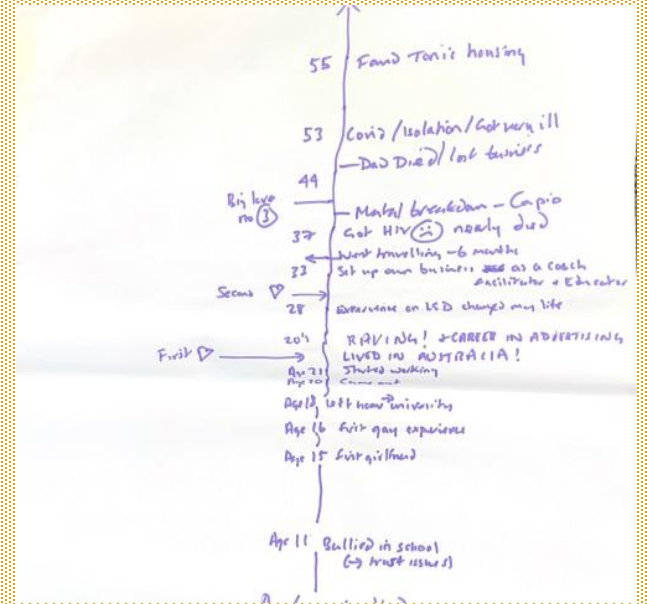 55 Found Tonic housing
53 Covid/Isolation/Got very ill
Dad Died/lost business
44
Big love
no 3
Mental breakdown - Capio
37 Got HIV ☹ nearly died
Went travelling - 6 months
33 Set up own business as a coach
Facilitator + Educator
Second ♡
28 Experience on LSD changed my life
20's RAVING! + CAREER IN ADVERTISING
First ♡
LIVED IN AUSTRALIA!
Age 21 Started working
Age 20 Came out
Age 18 Left home → university
Age 16 First gay experience
Age 15 First girlfriend
Age 11 Bullied in school
(→ trust issues)